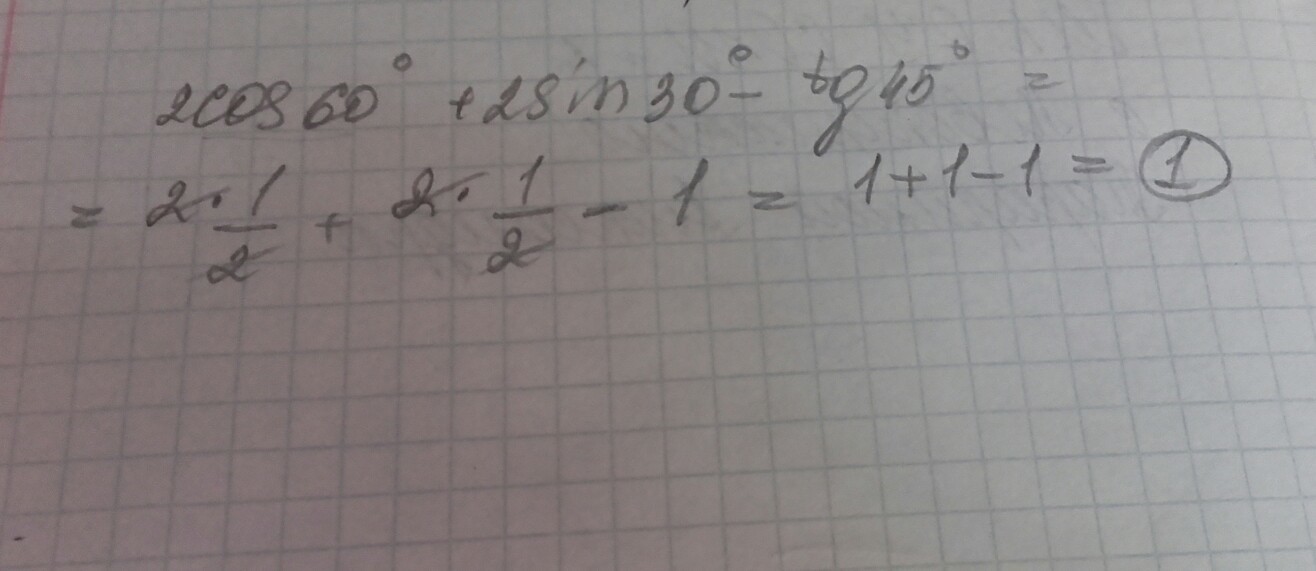 2cos60° + 2sin30° - tg45° =
= 2·1/2 + 2·1/2 - 1 = 1+1-1 = 1